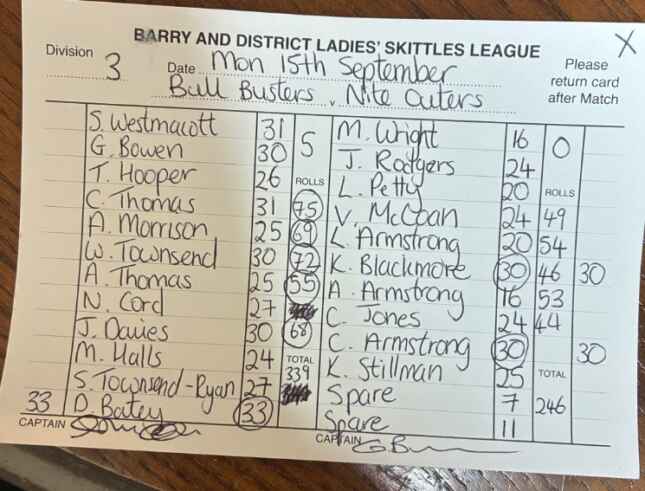 BARRY AND DISTRICT LADIES' SKITTLES LEAGUE
X
Division 3 Date Mon 15th September
Please return card after Match
Ball Busters v Nite Outers
S. Westmacott 31 5 M. Wright 16 0
G. Bowen 30 J. Rodgers 24
T. Hooper 26 ROLLS L. Petty 20 ROLLS
C. Thomas 31 75 V. McCoan 24 49
A. Morrison 25 69 L. Armstrong 20 54
W. Townsend 30 72 K. Blackmore 30 46 30
A. Thomas 25 55 A. Armstrong 16 53
N. Cord 27 C. Jones 24 44
J. Davies 30 68 C. Armstrong 30 30
M. Halls 24 TOTAL 339 K. Stillman 25 TOTAL
S. Townsend-Ryan 27 Spare 7 246
33 D. Batey 33 Spare 11
CAPTAIN CAPTAIN